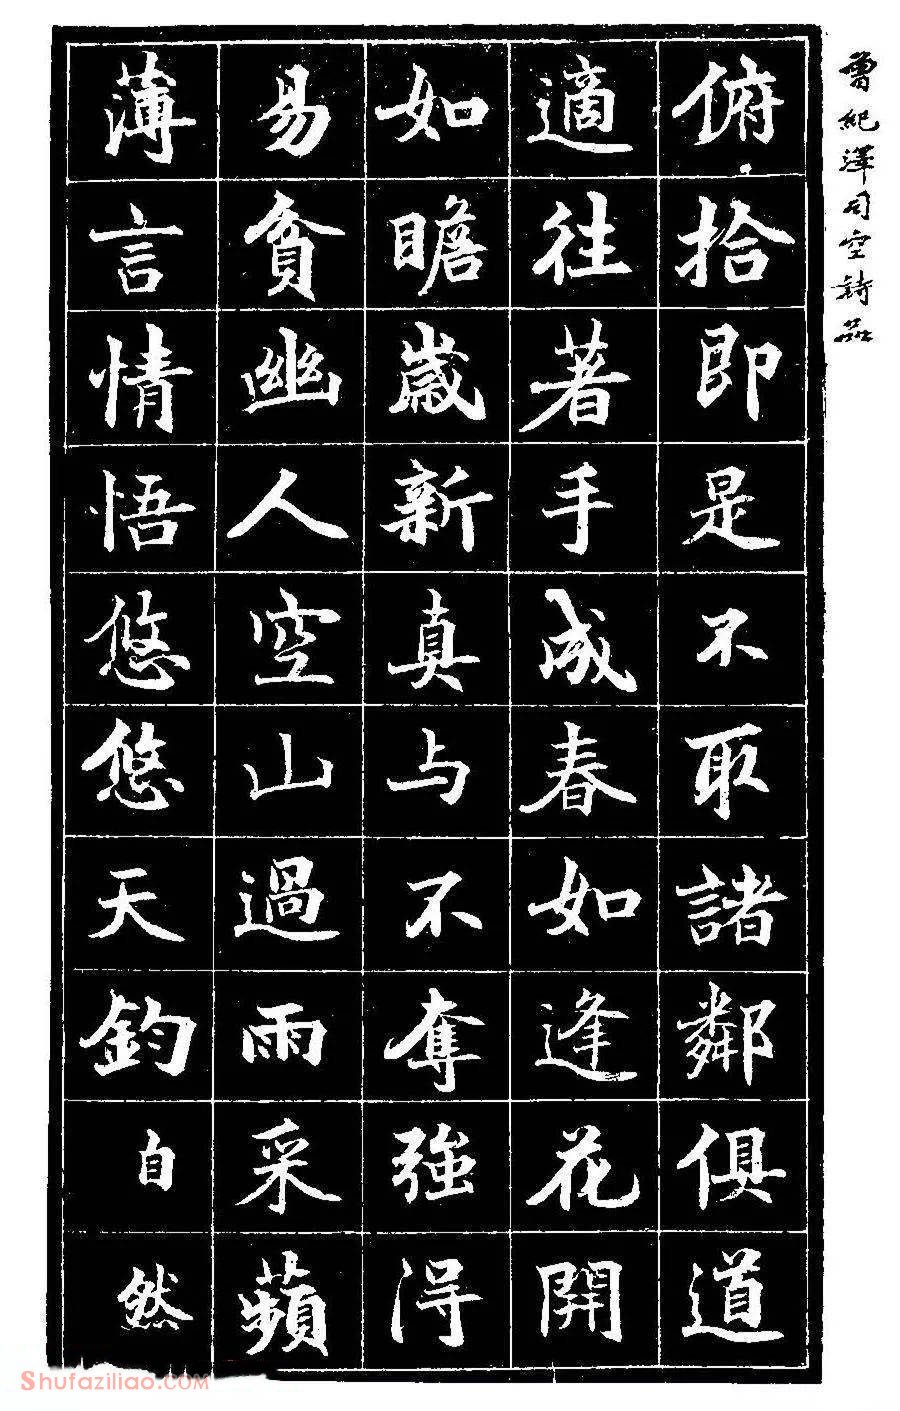 曾紀澤司空詩品
俯拾即是不取諸鄰俱道
適往著手成春如逢花開
如瞻歲新真与不奪強得
易貧幽人空山過雨采蘋
薄言情悟悠悠天鈞自然
Shufaziliao.COM